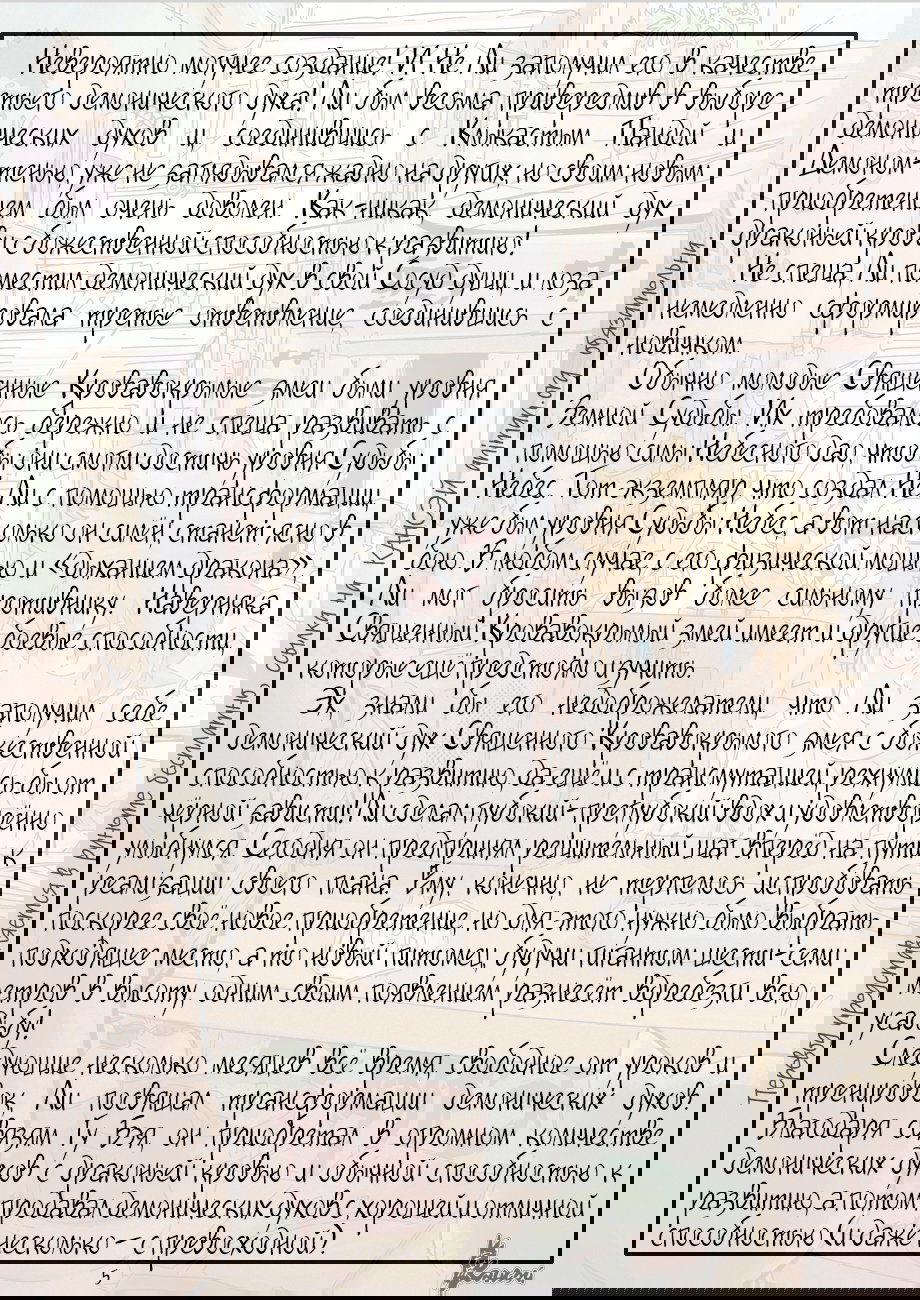 Невероятно могучее создание! И Не Ли заполучил его в качестве
третьего демонического духа! Ли был весьма привередлив в выборе
демонических духов и соединившись с Клыкастым Пандой и
Демоном-тенью, уже не заглядывался жадно на других, но своим новым
приобретением был очень доволен. Как-никак, демонический дух
драконьей крови и с божественной способностью к развитию!
Не спеша, Ли поместил демонический дух в свой Сосуд души, и лоза
немедленно сформировала третье ответвление, соединившись с
новичком.
Обычно молодые Священные Кровавокрылые змеи были уровня
Земной Судьбы. Их требовалось бережно и не спеша развивать с
помощью силы Небесной дао, чтобы они смогли достичь уровня Судьбы
Небес. Тот экземпляр, что создал Не Ли с помощью трансформации,
уже был уровня Судьбы Небес, а вот насколько он силён, станет ясно в
бою. В любом случае, с его физической мощью и «дыханием дракона»
Ли мог бросить вызов более сильному противнику. Наверняка
Священный Кровавокрылый змей имеет и другие боевые способности,
которые ещё предстояло изучить.
Эх, знали бы его недоброжелатели, что Ли заполучил себе
демонический дух Священного Кровавокрылого змея с божественной
способностью к развитию, да ещё и с трансмутацией, рехнулись бы от
чёрной зависти! Ли сделал глубокий-преглубокий вдох и удовлетворённо
улыбнулся. Сегодня он предпринял решительный шаг вперёд на пути к
реализации своего плана. Ему, конечно, не терпелось испробовать
поскорее своё новое приобретение, но для этого нужно было выбрать
подходящее место, а то новый питомец, будучи гигантом шести-семи
метров в высоту, одним своим появлением разнесёт вдребезги всю
усадьбу!
Следующие несколько месяцев всё время, свободное от уроков и
тренировок, Ли посвящал трансформации демонических духов.
Благодаря связям Гу Бэя, он приобретал в огромном количестве
демонических духов с драконьей кровью и обычной способностью к
развитию, а потом продавал демонических духов с хорошей и отличной
способностью (и даже несколько – с превосходной)
5